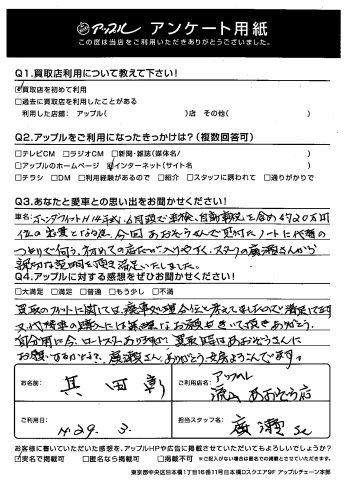 アップル アンケート用紙
この度は当店をご利用いただきありがとうございました。
Q1.買取店利用について教えて下さい!
☑買取店を初めて利用
□過去に買取店を利用したことがある
利用した店舗: アップル( )店 その他( )
Q2.アップルをご利用になったきっかけは?(複数回答可)
□テレビCM □ラジオCM □新聞・雑誌(媒体名/ )
□アップルのホームページ ☑インターネット(サイト名 )
□チラシ □DM □利用経験があるので □紹介 □スタッフに誘われて □通りがかりで
Q3.あなたと愛車との思い出をお聞かせください!
車名:ホンダフィット H14年式 6月頭で車検、自動車税を含め
位の出費となる度、今回 あおぞうさんで ノートに代替の
つもりで伺う、初めての店だが入りやすく、スタッフの廣瀬さんから
親切な説明を頂き満足いたしました。
Q4.アップルに対する感想をぜひお聞かせください!
□大満足 □満足 □普通 □もう少し □不満
買取のフィットに関しては、廃車処理合いと考えましたので満足してます
又代替車の購入には無理なお願いをきいて頂きありがとう。
自分用に今、ロードスターあり 買取店はあおぞうさんに
お願いするかも? 廣瀬さん、ありがとうございます。
お名前:
ご利用店名: アップル
流山あおぞう店
ご利用日: H29. 3.
担当スタッフ名: 廣瀬 Sc
お客様に書いていただいた感想を、アップルHPや広告に掲載させていただいてもよろしいでしょうか?
☑実名で掲載可 □匿名なら掲載可 □掲載不可 ※ご記入がない場合は匿名での掲載とさせていただきます。
東京都中央区日本橋1丁目16番11号日本橋Dスクエア9F アップルチェーン本部